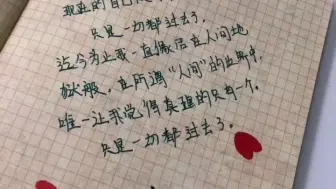 现在的自己
只是一切都过去了，
迄今为止我一直佩居在人间地
狱般，在所谓“人间”的世界中，
唯一让我觉得真理的只有一个。
只是一切都过去了。